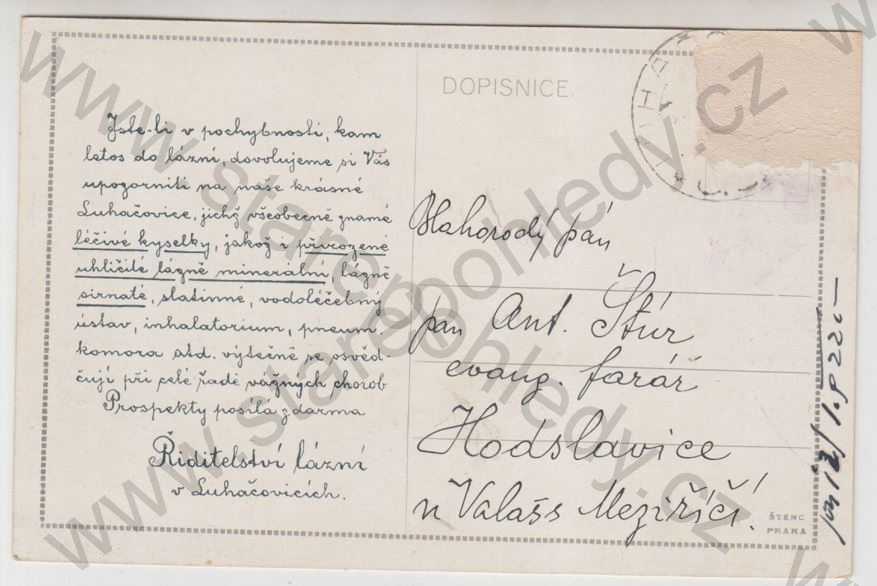 DOPISNICE
Jste-li v pochybnosti, kam
letos do lázní, dovolujeme si Vás
upozorniti na naše krásné
Luhačovice, jichž všeobecně známé
léčivé kyselky, jakož i přirozené
uhličité lázně minerální, lázně
sirnaté, slatinné, vodoléčebný
ústav, inhalatorium, pneum.
komora atd. výtečně se osvěd-
čují při celé řadě vážných chorob
Prospekty posílá zdarma
Ředitelství lázní
v Luhačovicích.
Blahorodý pán
pan Ant. Štúr
evang. farář
Hodslavice
u Valašs Meziříčí.
ŠTENC
PRAHA
www.starepohledy.cz
www.starepohledy.cz